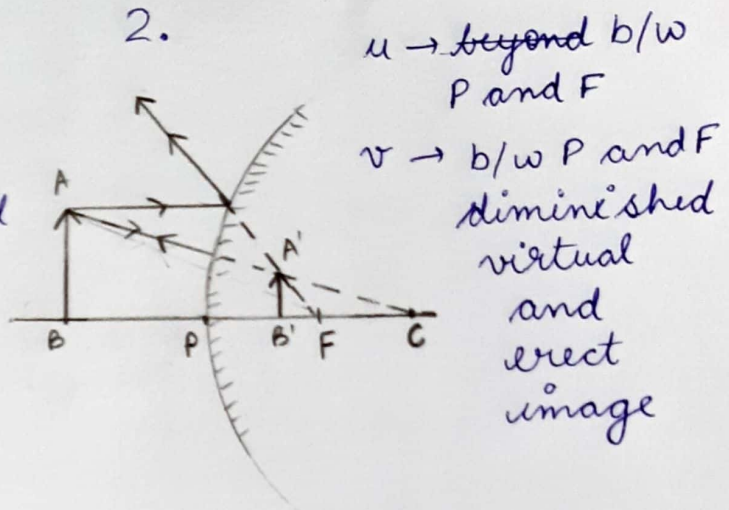 2.
u → beyond b/w
P and F
v → b/w P and F
diminished
virtual
and
erect
image
A
A'
B
P
B'
F
C